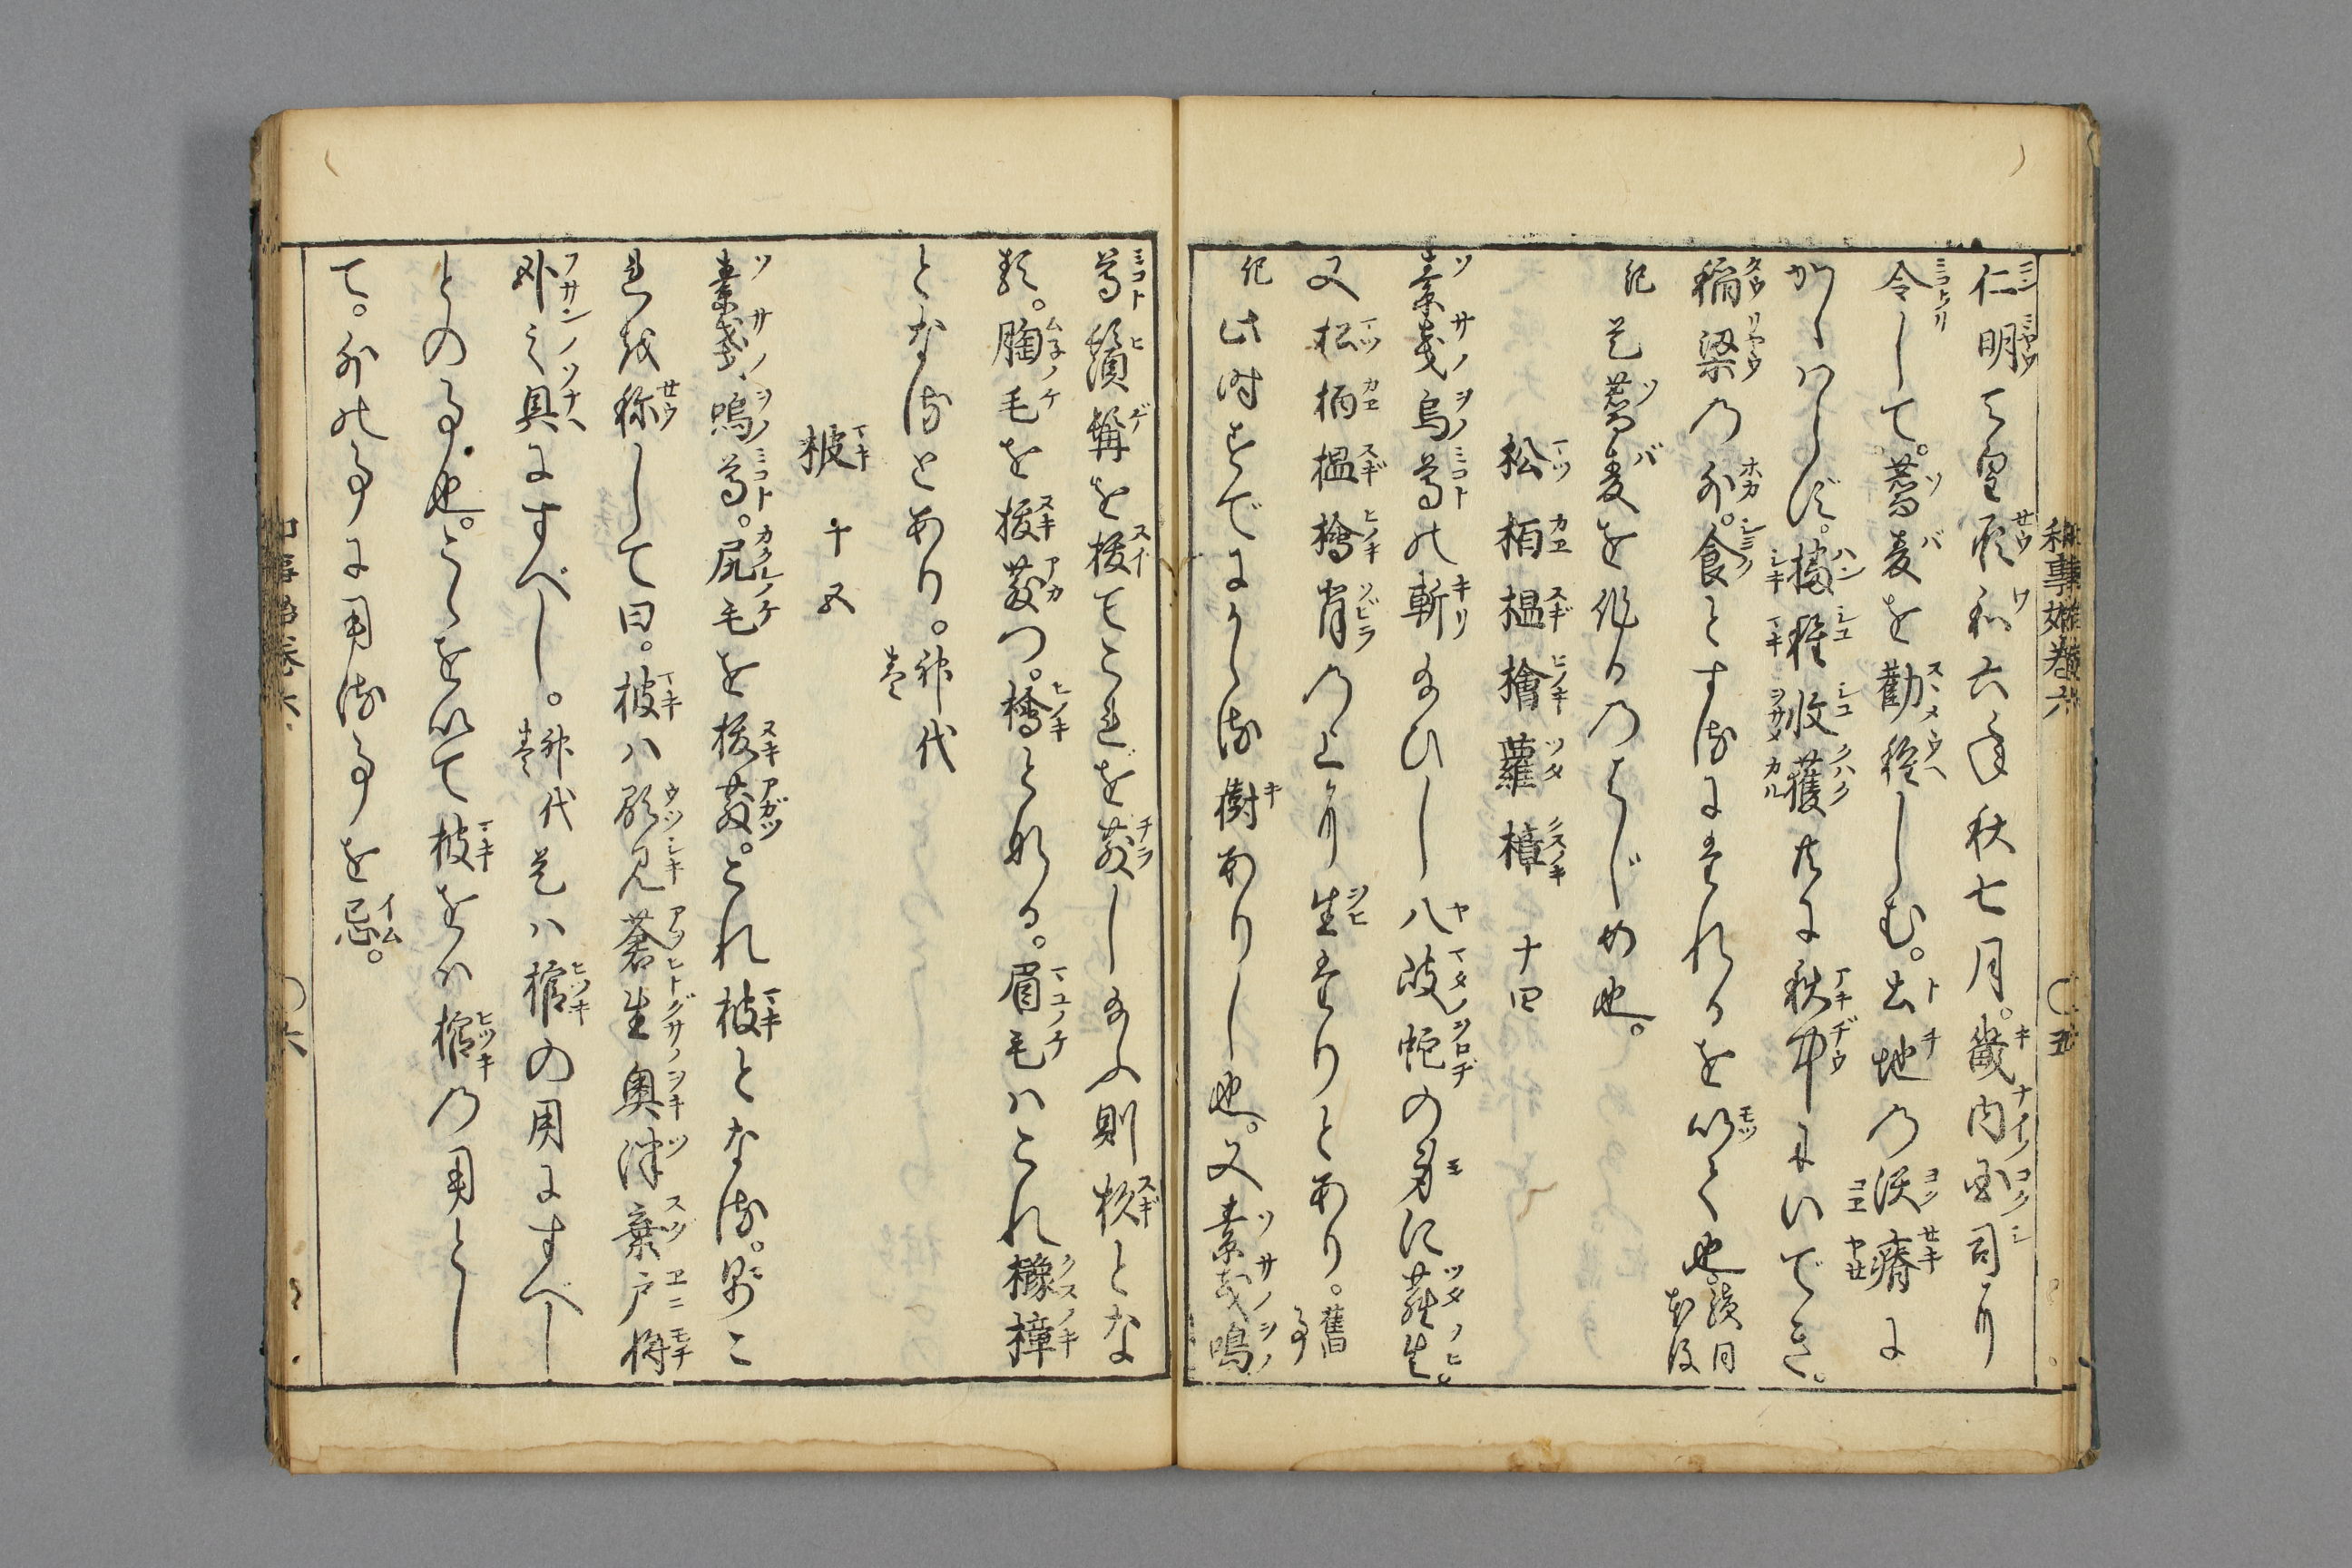 和事始巻六 〇五
仁明天皇承和六年秋七月。畿内国司より
令して。蕎麦を勧種しむ。土地の沃瘠に
かゝハらず。播種収獲共に秋中にいでき。
稲梁の外。食とするにたれるを以て也。続日本後
紀 是蕎麦を作るのはじめ也。
松 栢 榲 檜 蘿 樟 十四
素戔烏尊の斬給ひし八岐蛇の身に蘿生。
又松栢榲檜背の上より生たりとあり。旧事
紀 此時すでにかゝる樹ありし也。又素戔嗚
尊鬚髯を抜てこれを散し給ふ則杉とな
る。胸毛を抜散つ。檜となる。眉毛ハこれ櫲樟
となるとあり。神代巻
柀 十五
素戔嗚尊。尻毛を抜散。これ柀となる。
これを称して曰。柀ハ顕見蒼生奥津棄戸将
臥之具にすべし。神代巻 是ハ棺の用にすべし
との事也。こゝを以て柀をバ棺の用とし
て。外の事に用る事を忌。
和事始巻六 〇六